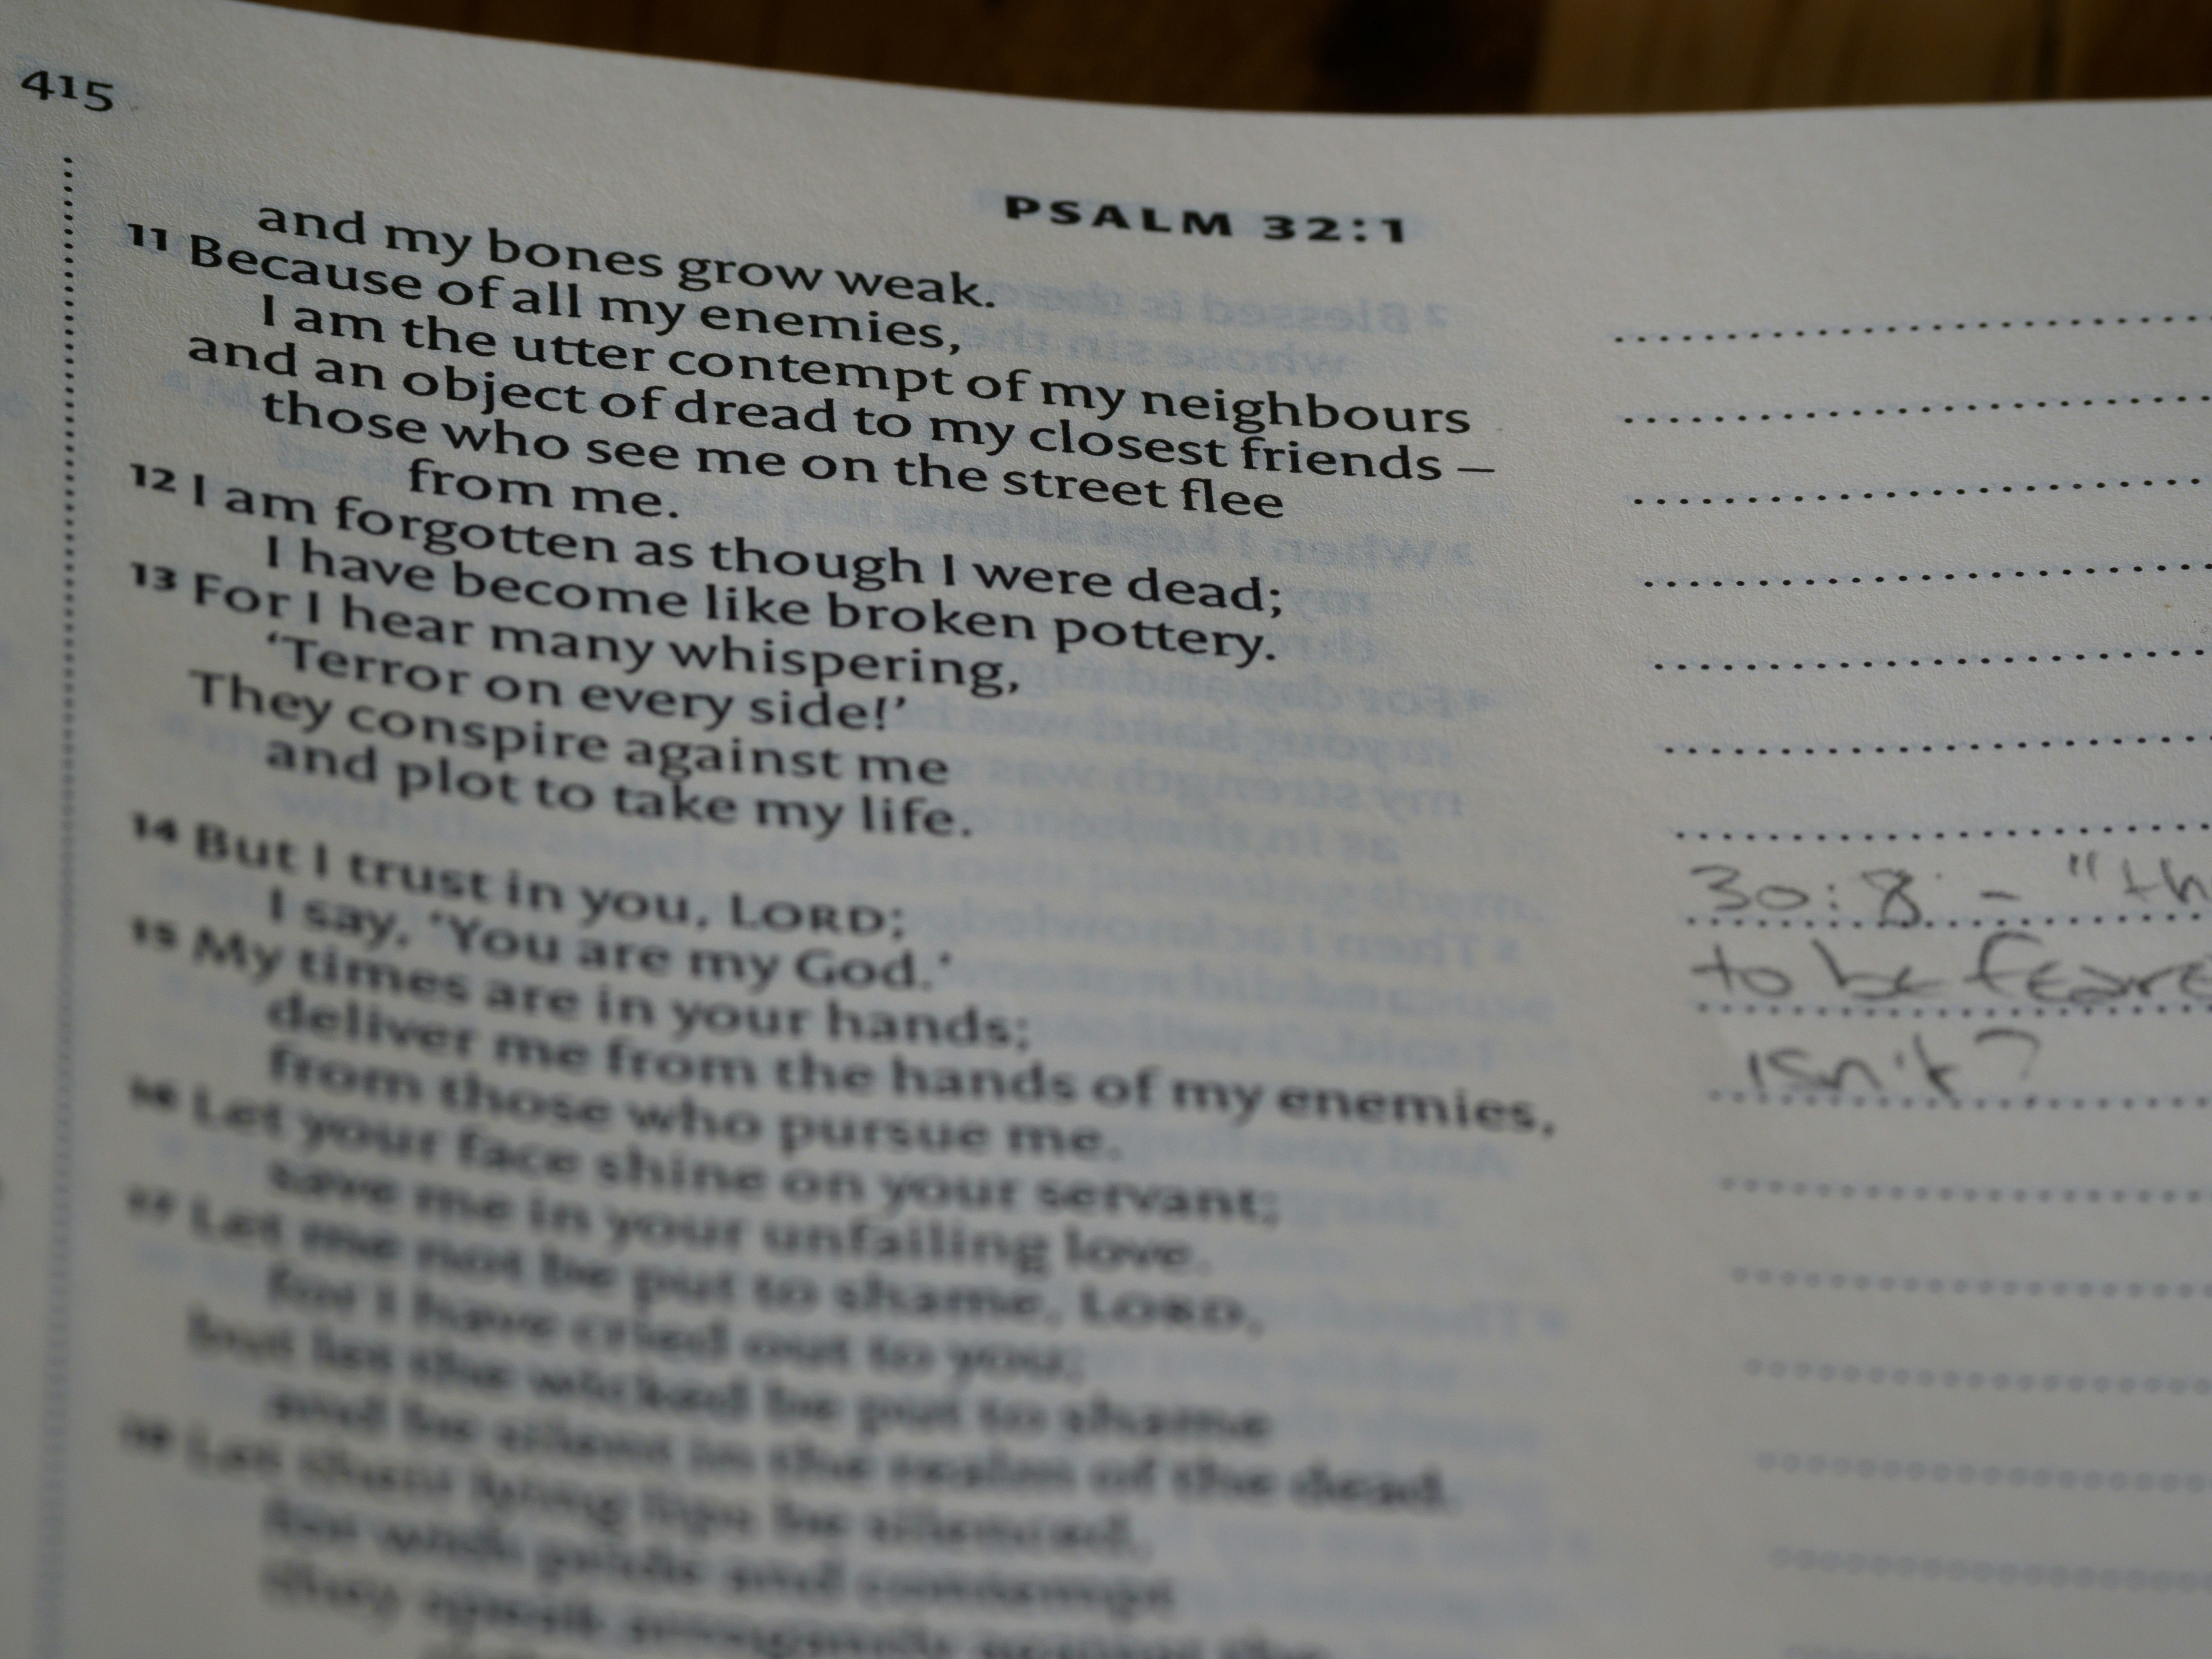 415
PSALM 32:1
and my bones grow weak.
11 Because of all my enemies,
I am the utter contempt of my neighbours
and an object of dread to my closest friends –
those who see me on the street flee
from me.
12 I am forgotten as though I were dead;
I have become like broken pottery.
13 For I hear many whispering,
‘Terror on every side!’
They conspire against me
and plot to take my life.
14 But I trust in you, LORD;
I say, ‘You are my God.’
15 My times are in your hands;
deliver me from the hands of my enemies,
from those who pursue me.
16 Let your face shine on your servant;
save me in your unfailing love.
17 Let me not be put to shame, LORD,
for I have cried out to you;
but let the wicked be put to shame
and be silent in the realm of the dead.
18 Let their lying lips be silenced,
for with pride and contempt
they speak arrogantly against the
30:8 - "th
to be feare
isn't?